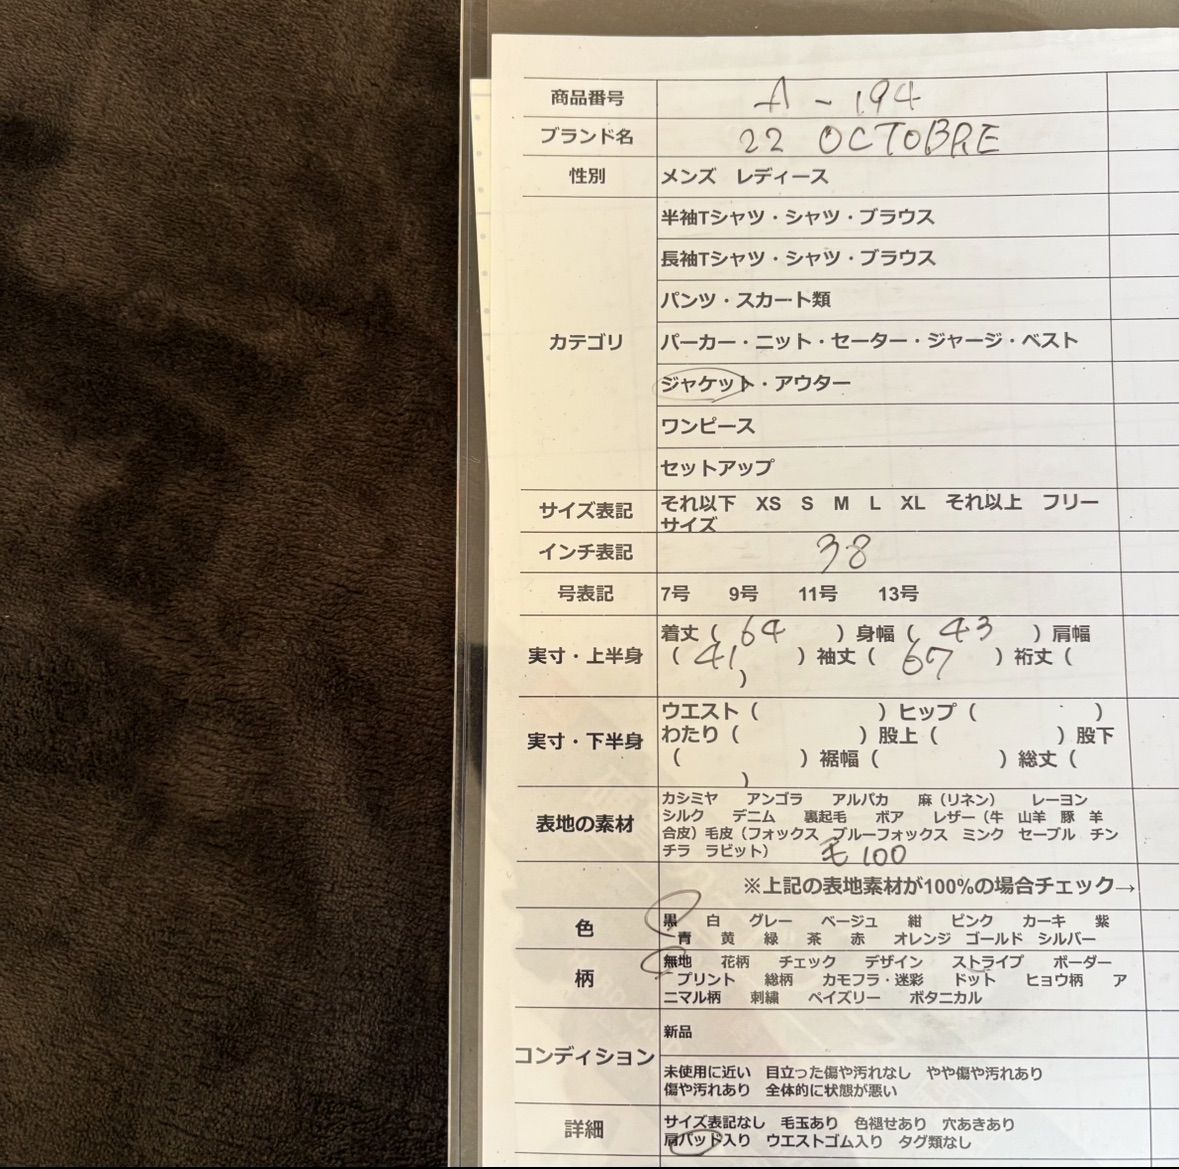 商品番号 A - 194
ブランド名 22 OCTOBRE
性別 メンズ レディース
半袖Tシャツ・シャツ・ブラウス
長袖Tシャツ・シャツ・ブラウス
パンツ・スカート類
カテゴリ パーカー・ニット・セーター・ジャージ・ベスト
ジャケット・アウター
ワンピース
セットアップ
サイズ表記 それ以下 XS S M L XL それ以上 フリー
サイズ
インチ表記 38
号表記 7号 9号 11号 13号
着丈( 64 )身幅( 43 )肩幅
実寸・上半身 ( 41 )袖丈( 67 )裄丈(
)
ウエスト( )ヒップ( )
実寸・下半身 わたり( )股上( )股下
( )裾幅( )総丈(
)
カシミヤ アンゴラ アルパカ 麻(リネン) レーヨン
表地の素材 シルク デニム 裏起毛 ボア レザー(牛 山羊 豚 羊
合皮)毛皮(フォックス ブルーフォックス ミンク セーブル チン
チラ ラビット) 毛100
※上記の表地素材が100%の場合チェック→
色 黒 白 グレー ベージュ 紺 ピンク カーキ 紫
青 黄 緑 茶 赤 オレンジ ゴールド シルバー
無地 花柄 チェック デザイン ストライプ ボーダー
柄 プリント 総柄 カモフラ・迷彩 ドット ヒョウ柄 ア
ニマル柄 刺繍 ペイズリー ボタニカル
新品
コンディション
未使用に近い 目立った傷や汚れなし やや傷や汚れあり
傷や汚れあり 全体的に状態が悪い
詳細 サイズ表記なし 毛玉あり 色褪せあり 穴あきあり
肩パッド入り ウエストゴム入り タグ類なし